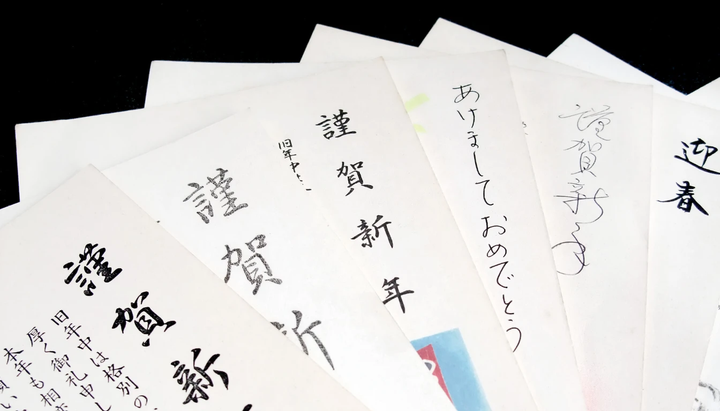 迎春
謹賀新年
あけましておめでとう
謹賀新年
旧年中
謹賀新
謹賀新
旧年中は格別の
厚く御礼申し
本年も相